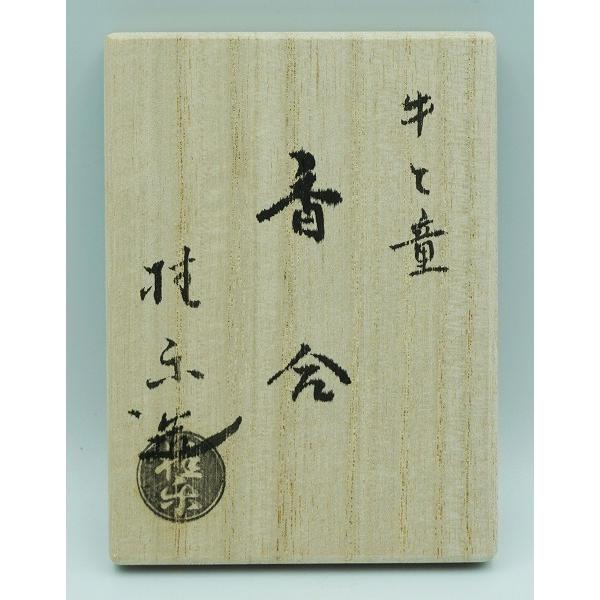 牛と童
香合
桂楽造
桂楽